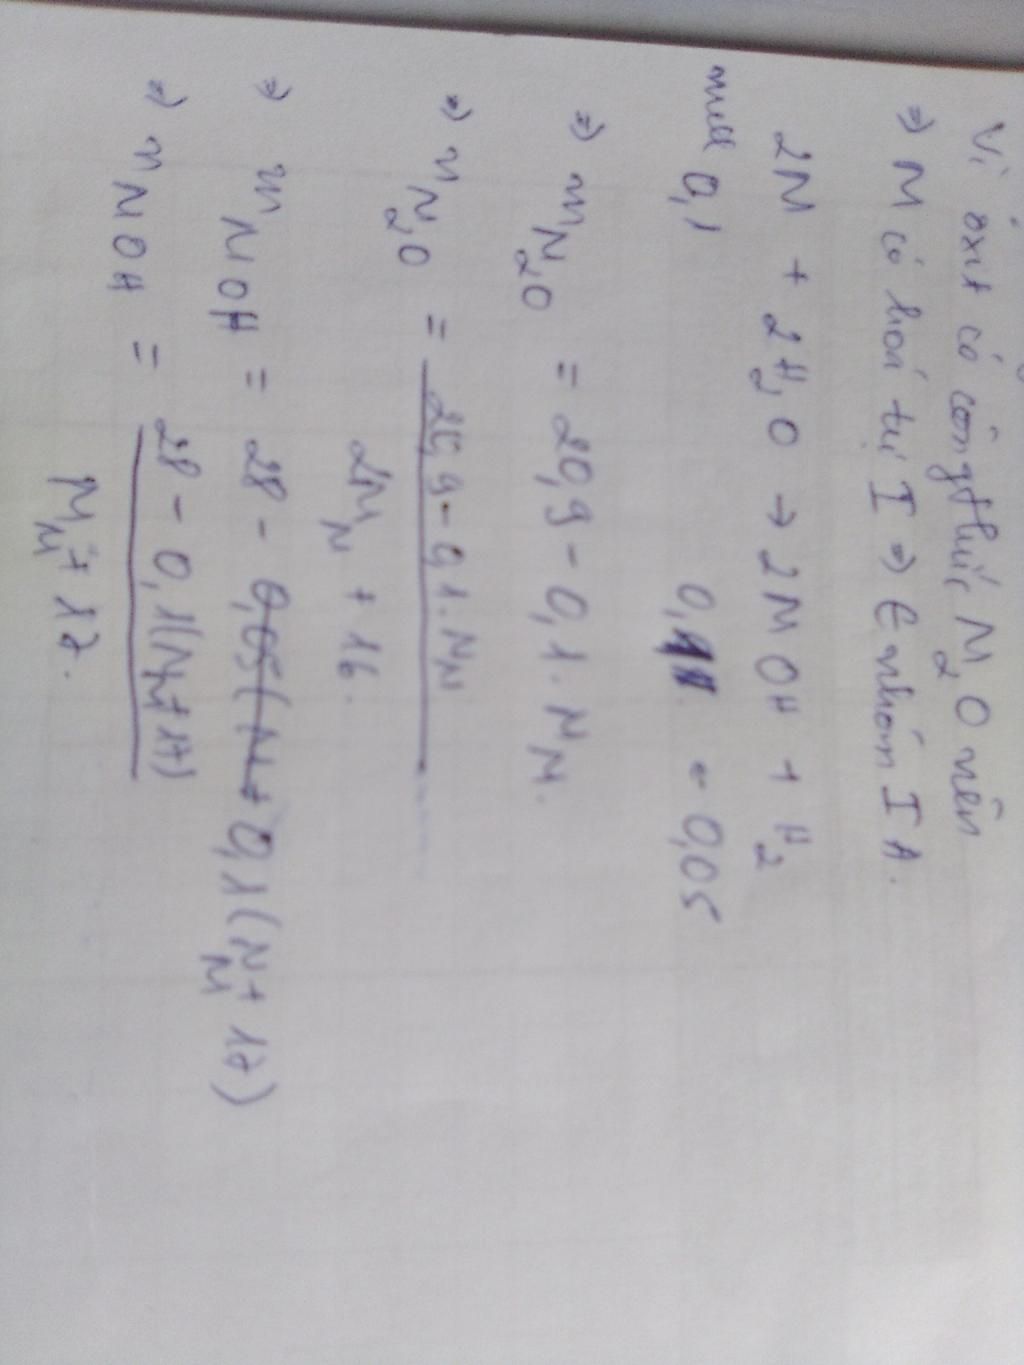 Vì ôxit có công thức M2O nên
⇒ M có hoá trị I ⇒ ∈ nhóm IA.
2M + 2H2O → 2MOH + H2
0,1 0,1 ← 0,05
⇒ mM2O = 20,9 - 0,1.MM.
⇒ nM2O = (20,9 - 0,1.MM) / (2MM + 16).
⇒ mMOH = 28 - 0,1(MM + 17)
⇒ nMOH = (28 - 0,1(MM + 17)) / (MM + 17).